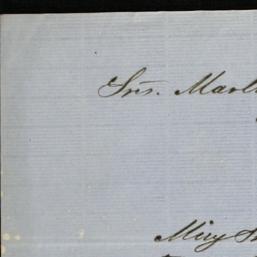 Srs. Mart
Muy S